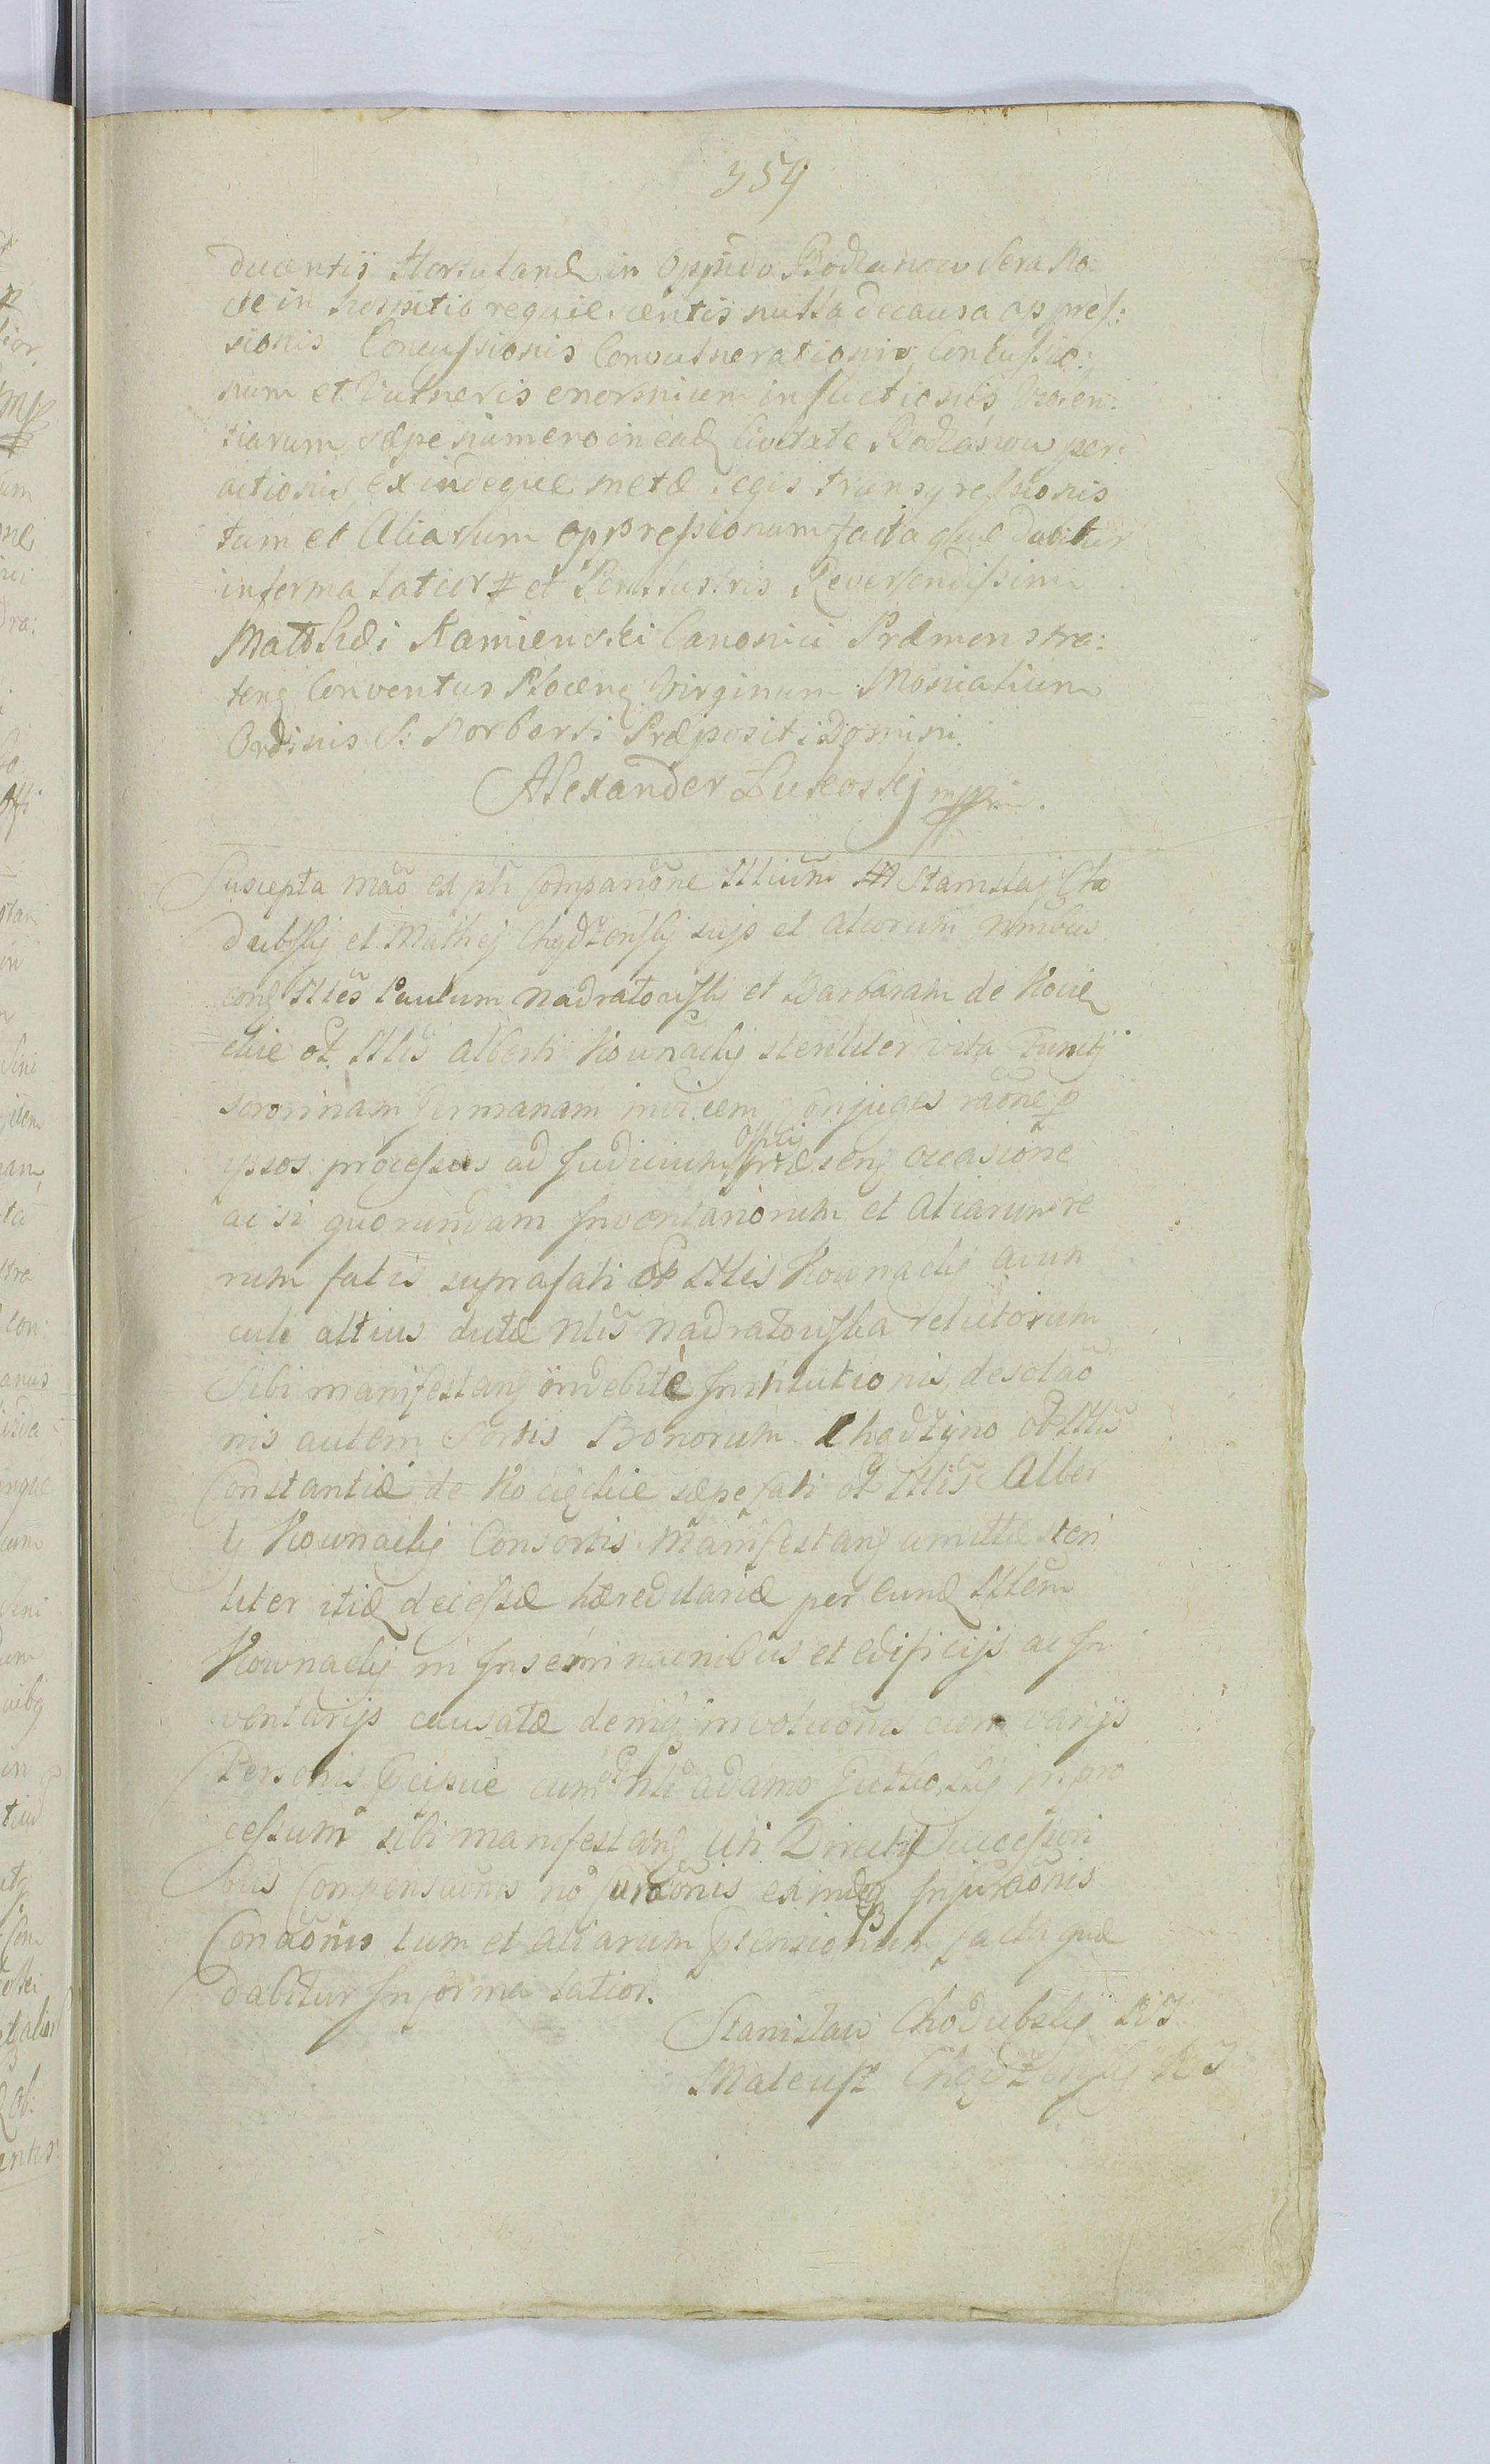 359
ducentis Hortulanæ in Oppido Bodzanow sera No:
cte in hospitio requiescentis nulla de causa oppres:
sionis Concussionis Convulnerationis Contusio:
num et Vulneris enormium inflictionis Violen:
tiarum sæpenumero in eadem Civitate Bodzanow per:
actionis exindeque metæ legis transgressionis
tum et Aliarum oppressionum facta quæ dabitur
in forma latior # et Perillustris Reverendissimi
Mathæi Kamienski Canonici Præmonstra:
tens Conventus Plocens Virginum Monialium
Ordinis S: Norberti Præpositi Domini
Alexander Lukoskj mppria.
Suscepta mao ex pti Comparione Mlium M Stanislaj Cho
dubskj et Mathej Chądzenskj suo et aliorum nmibus
cong Mles Paulum Nadratowskj et Barbaram de
olim Mlis Alberti Kownackj steriliter vita functj
sororinam Germanam invicem Conjuges raone p
ipsos processus ad Judicium Officij præseng occasione
ac si quorundam Inventariorum et aliarum re
rum fatis suprafati olim Mlis Kownackj avun
culi altius dictæ Mlis Nadratowska relictorum
Sibi manifestang indebitè Institutionis, desolao
nis autem Sortis Bonorum Chądzyno olim Mlis
Constantiæ de sæpefati olim Mlis Alber
tj Kownackj Consortis manifestang amittæ steri
liter itid decessæ hæreditariæ per eund Mlem
Kownackj in Inseminaonibus et ædificijs ac In
ventarijs causatæ deniq involuonis cum varijs
Personis præcipue cum olim Mli Adamo in pro
cessum sibi manifestang uti Directis Successori
bus Compensaonis no Juraonis exindeq Injuraonis
Conaonis tum et aliarum prætensionum facta quæ
dabitur In forma latior.
Stanisław Chodubskj
Mateusz Chądzenskj